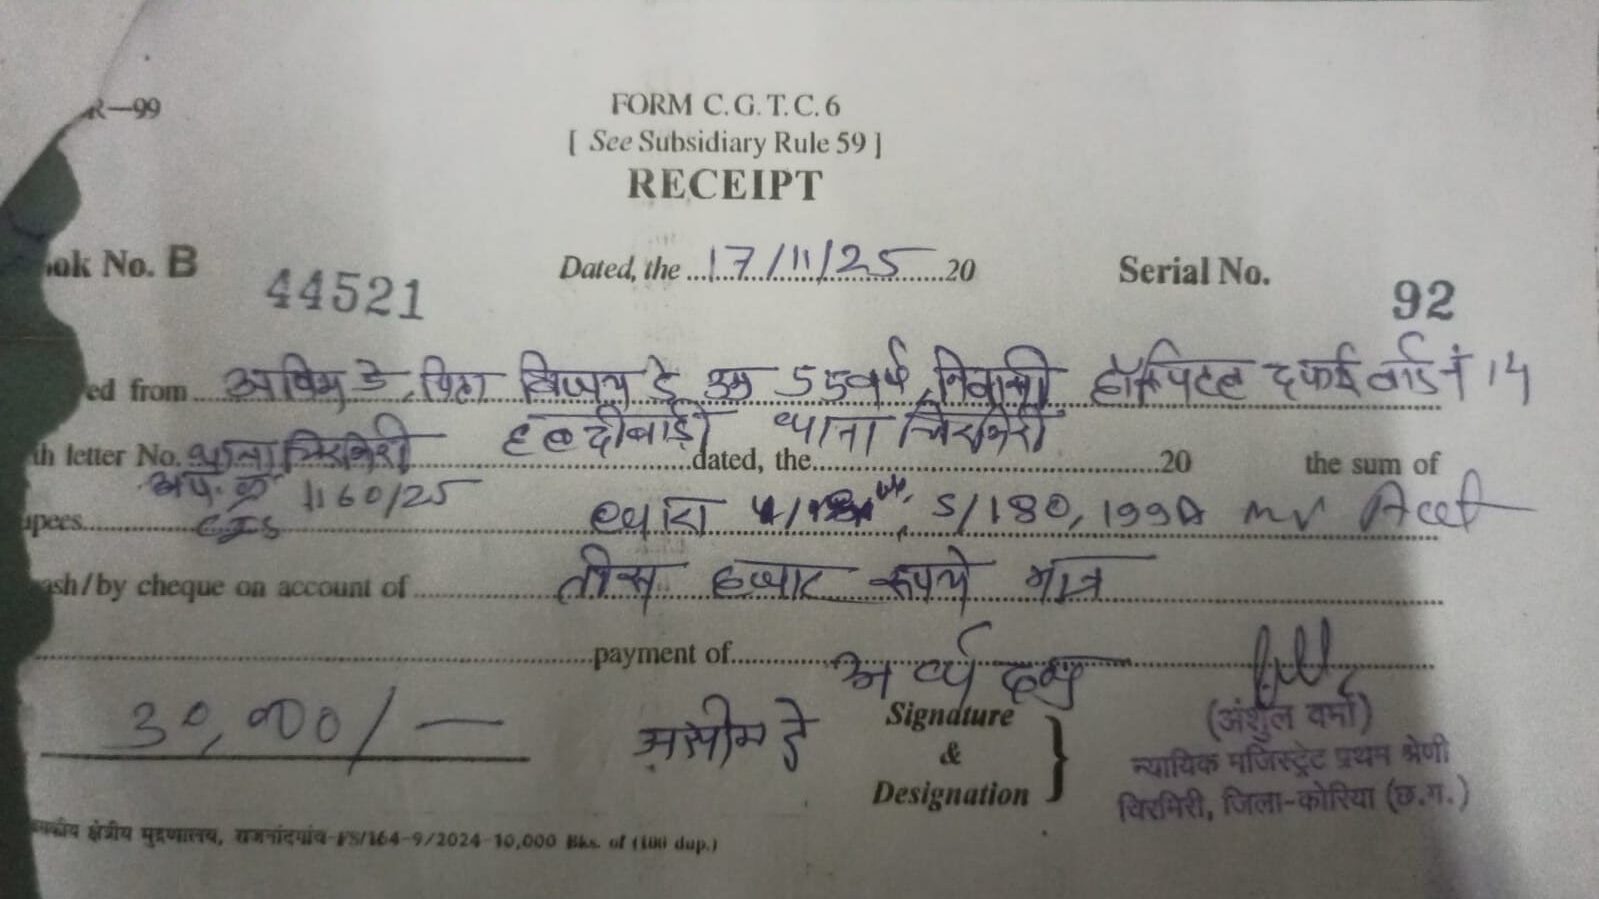 R—99
FORM C.G.T.C. 6
[ See Subsidiary Rule 59 ]
RECEIPT
ok No. B 44521 Dated, the 17/11/25 20 Serial No. 92
ed from डे, पिता विजय डे उम्र 55 वर्ष, निवासी हॉस्पिटल दफाई वार्ड नं 14
हल्दीबाड़ी थाना चिरमिरी
th letter No. थाना चिरमिरी dated, the 20 the sum of
अप. क्र 1160/25
upees धारा 5/180, 199A mv Act
ash/by cheque on account of तीस हजार रूपये मात्र
payment of अर्थदण्ड
30,000/— असीम डे Signature & Designation
(अंशुल वर्मा)
न्यायिक मजिस्ट्रेट प्रथम श्रेणी
चिरमिरी, जिला-कोरिया (छ.ग.)
क्षेत्रीय मुद्रणालय, राजनांदगांव-FS/164-9/2024-10,000 Bks. of (100 dup.)